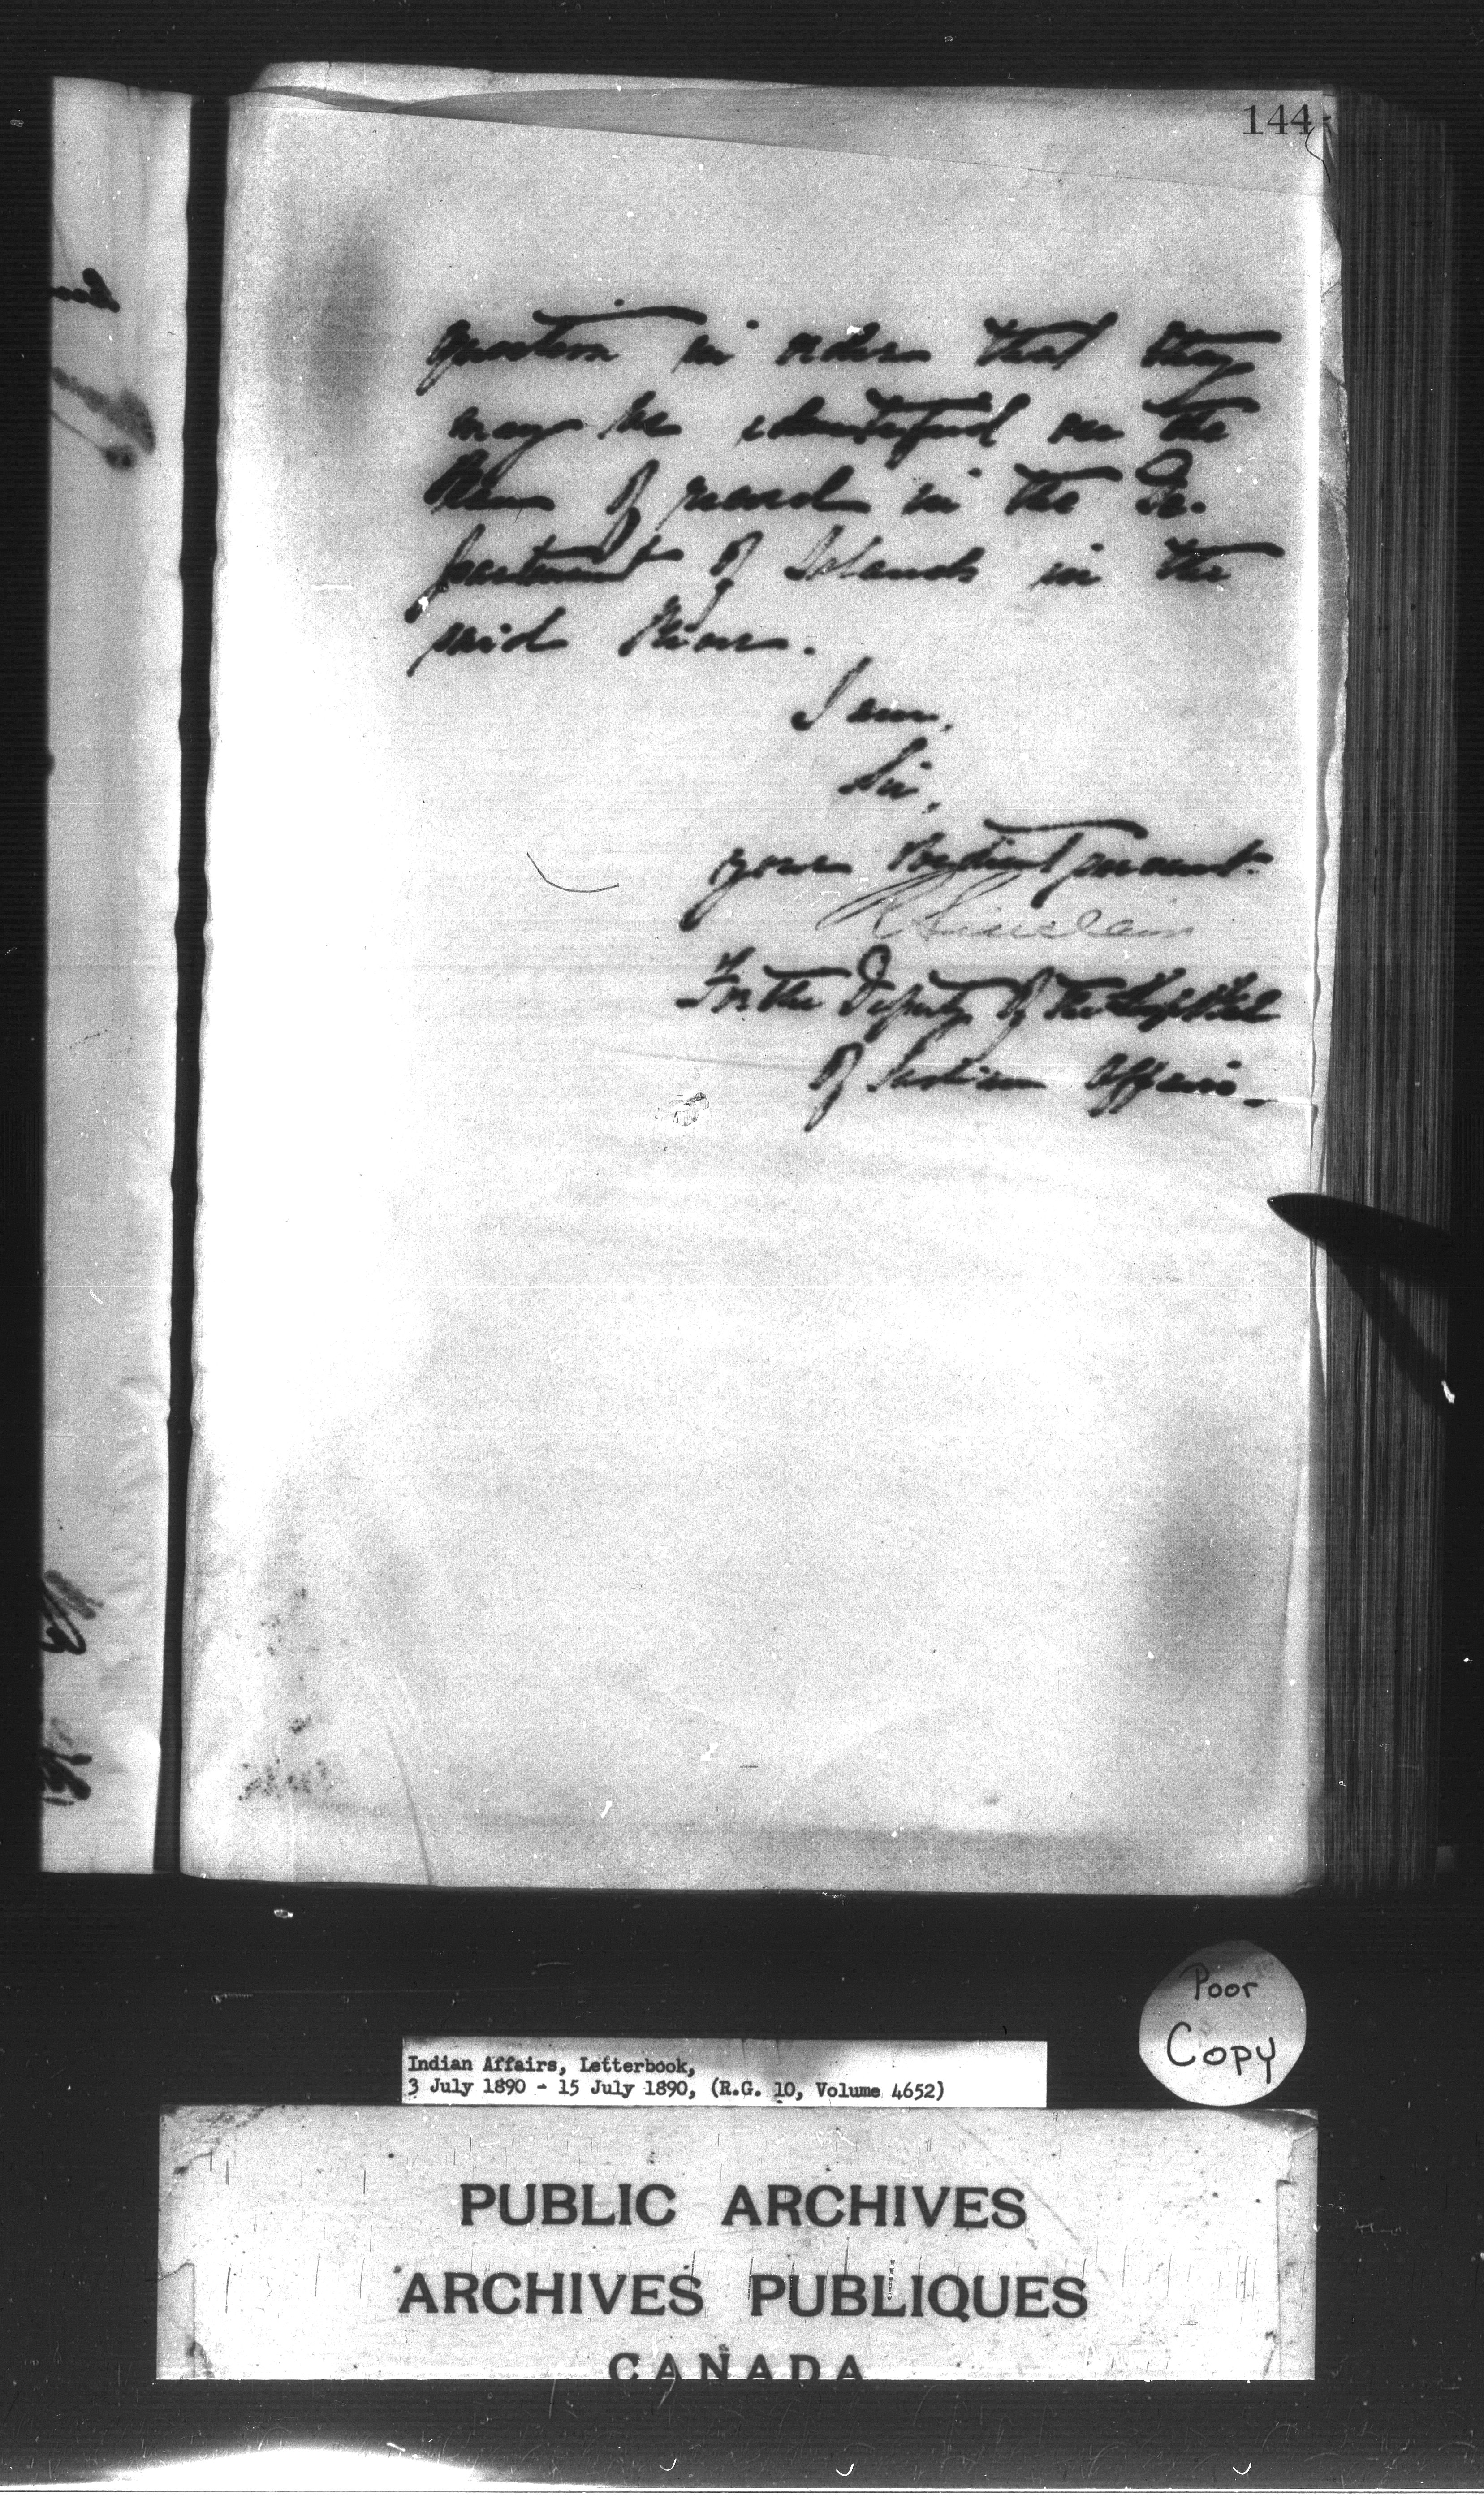 144
question in order that they
may be identified on the
Plan of record in the De-
partment of Islands in the
said River.
I am,
Sir,
your obedient servant.
R Sinclair
For the Deputy of the Supt Genl
of Indian Affairs.
Poor
Copy
Indian Affairs, Letterbook,
3 July 1890 - 15 July 1890, (R.G. 10, Volume 4652)
PUBLIC ARCHIVES
ARCHIVES PUBLIQUES
CANADA